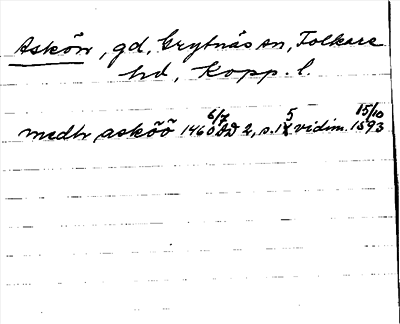 Asköv, gd, Grytnäs sn, Folkare
hd, Kopp. l.
medh asköö 1460 6/7 DD 2, s. 15 vidim. 15/10 1593